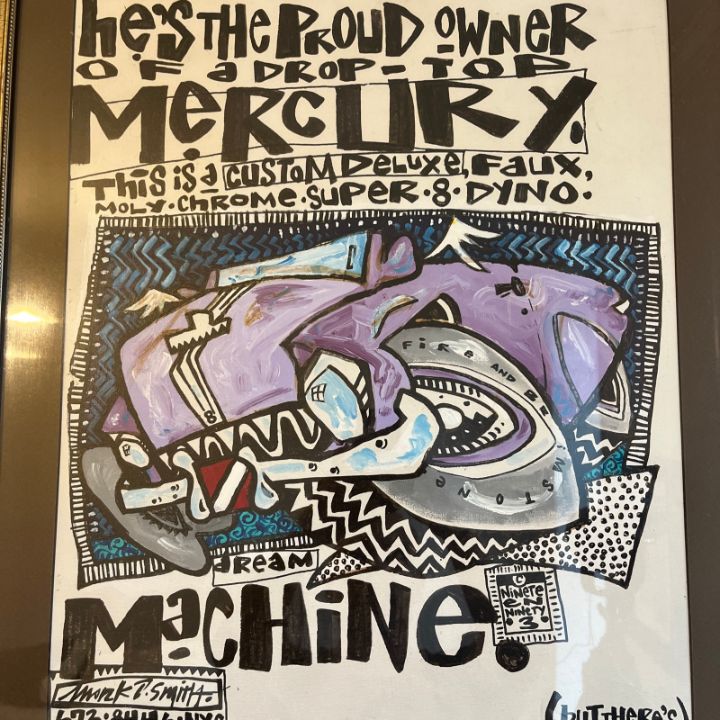 he's THE PROUD OWNER
OF a DROP-TOP
MeRCURY.
THis is a CUSTOM, DeLUXe, FAUX,
MOLY·CHROME·SUPER·8·DYNO·
8
FiRe AND BRiMSTONe
DREAM
MaCHiNE.
©
NiNeTE
eN
NiNeTY
3
Mark T. Smith.
(buT THeRe's)